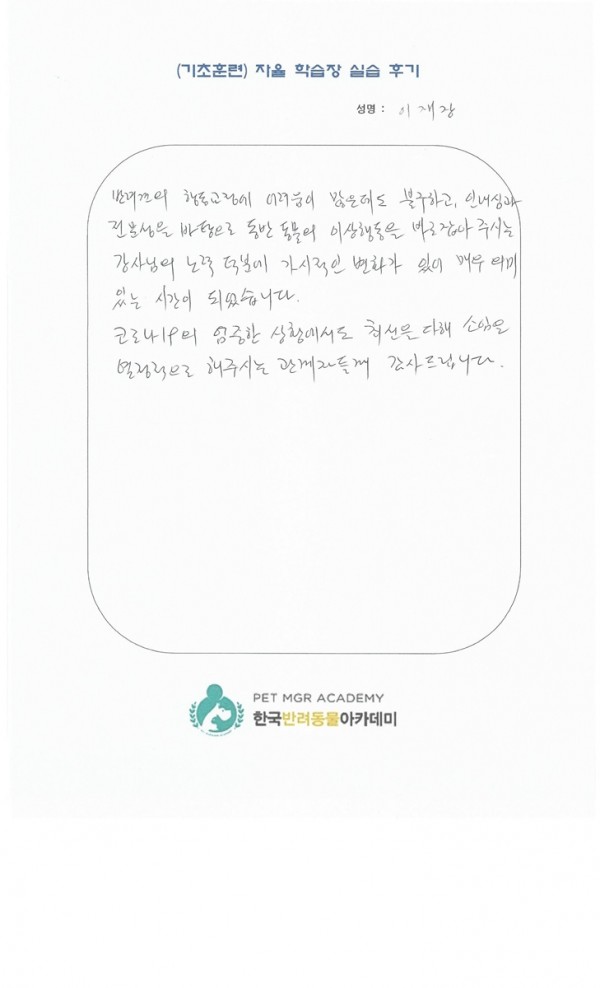 (기초훈련) 자율 학습장 실습 후기
성명 : 이재장
반려견의 행동교정에 어려움이 많은데도 불구하고, 인내심과
전문성을 바탕으로 동반 동물의 이상행동을 바로잡아 주시는
강사님의 노력 덕분에 가시적인 변화가 있어 매우 의미
있는 시간이 되었습니다.
코로나19의 엄중한 상황에서도 최선을 다해 소임을
열정적으로 해주시는 관계자들께 감사드립니다.
PET MGR ACADEMY
한국반려동물아카데미